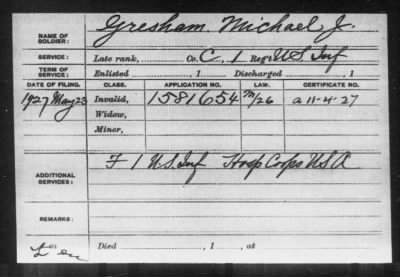 NAME OF SOLDIER: Gresham, Michael, J.
SERVICE: Late rank, Co. C, 1 Reg't U.S. Inf
TERM OF SERVICE: Enlisted , 1 Discharged , 1
DATE OF FILING. CLASS. APPLICATION NO. LAW. CERTIFICATE NO.
1927 May 23 Invalid, 1581654 M/26 a 11-4-27
Widow,
Minor,
ADDITIONAL SERVICES: F 1 U.S. Inf Hosp Corps U.S.A
REMARKS:
Died , 1 , at